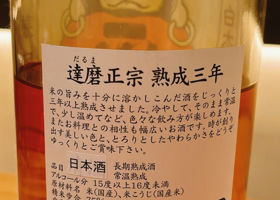 だるま
達磨正宗 熟成三年
米の旨みを十分に溶かしこんだ酒をじっくりと
三年以上熟成させました。冷やして、そのまま常温
で、少し温めてなど、色々な飲み方が楽しめます。
またお料理との相性も幅広いお酒です。時が創り
出す美しい色と、とろりとしたやわらかさをどうぞ
ゆっくりとご賞味下さい。
品目 日本酒 長期熟成酒
常温熟成
アルコール分 15度以上16度未満
原材料名 米(国産)、米こうじ(国産米)
精米歩合